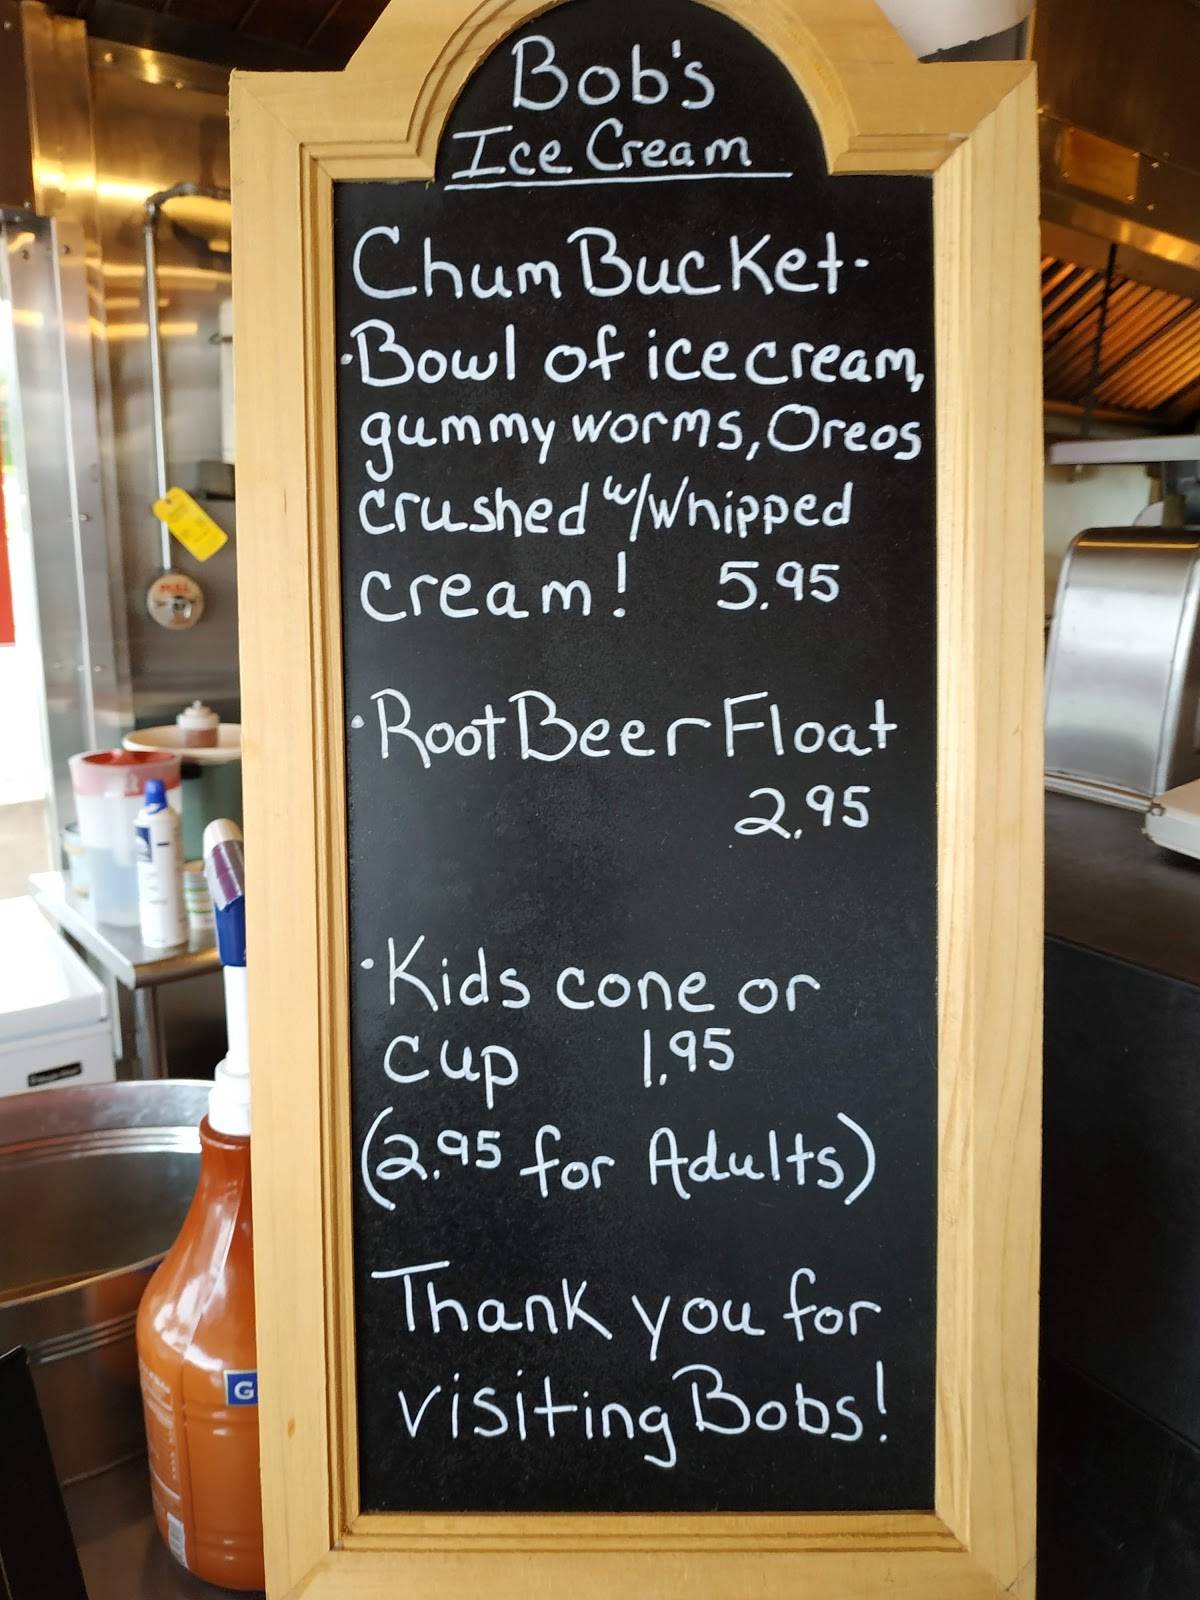 Bob's
Ice Cream
Chum Bucket-
·Bowl of ice cream,
gummy worms, Oreos
crushed w/whipped
cream! 5.95
·Root Beer Float
2.95
·Kids cone or
cup 1.95
(2.95 for Adults)
Thank you for
visiting Bobs!
G